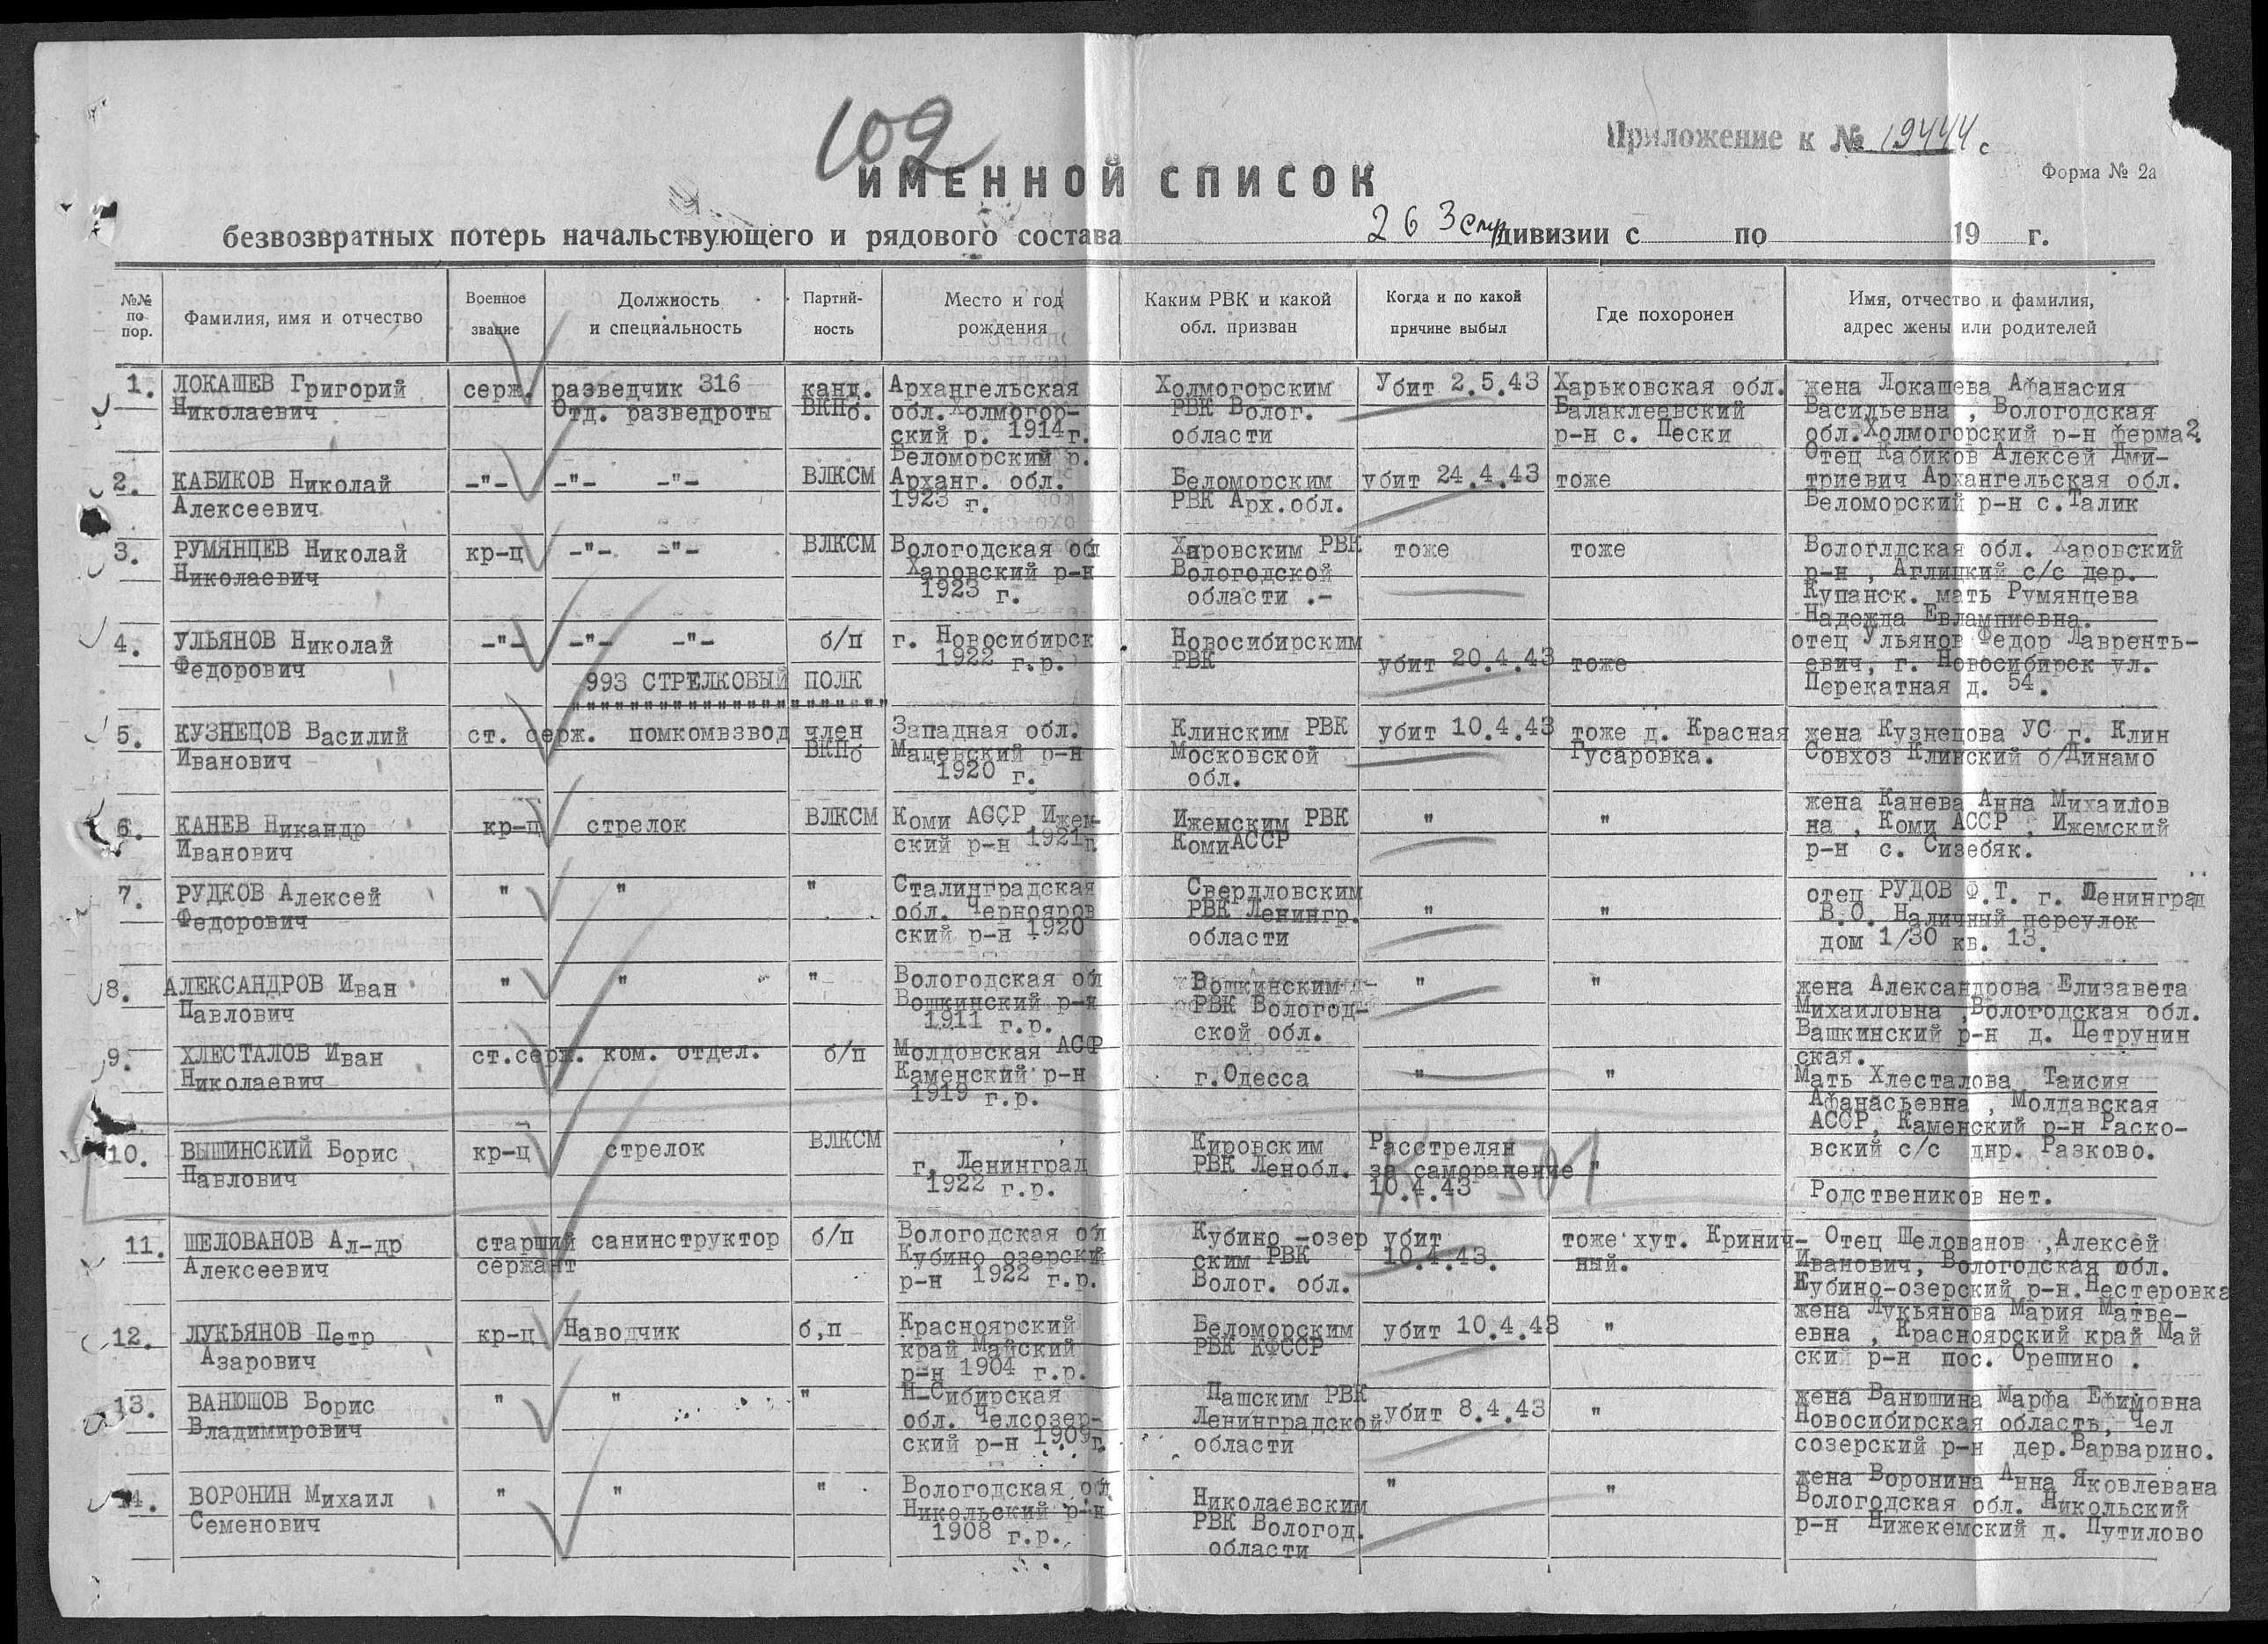 102
Приложение к № 19444 с
Форма № 2а
ИМЕННОЙ СПИСОК
безвозвратных потерь начальствующего и рядового состава 263 стр дивизии с по 19 г.
№№ по пор.
Фамилия, имя и отчество
Военное звание
Должность и специальность
Партий-
ность
Место и год
рождения
Каким РВК и какой
обл. призван
Когда и по какой
причине выбыл
Где похоронен
Имя, отчество и фамилия,
адрес жены или родителей
1. ЛОКАШЕВ Григорий серж. разведчик 316 канд. Архангельская Холмогорским Убит 2.5.43 Харьковская обл. жена Локашева Афанасия
Николаевич Отд. разведроты ВКПб. обл. Холмогор- РВК Волог. Балаклеевский Васильевна , Вологодская
ский р. 1914 г. области р-н с. Пески обл. Холмогорский р-н ферма 2.
Беломорский р. Отец Кабиков Алексей Дми-
2. КАБИКОВ Николай -"- -"- -"- ВЛКСМ Арханг. обл. Беломорским убит 24.4.43 тоже триевич Архангельская обл.
Алексеевич 1923 г. РВК Арх.обл. Беломорский р-н с.Талик
3. РУМЯНЦЕВ Николай кр-ц -"- -"- ВЛКСМ Вологодская обл Харовским РВК тоже тоже Вологлдская обл. Харовский
Николаевич Харовский р-н Вологодской р-н , Аглицкий с/с дер.
1923 г. области .- Купанск. мать Румянцева
Надежда Евлампиевна.
4. УЛЬЯНОВ Николай -"- -"- -"- б/п г. Новосибирск Новосибирским отец Ульянов Федор Лавренть-
Федорович 1922 г.р. РВК убит 20.4.43 тоже евич, г. Новосибирск ул.
993 СТРЕЛКОВЫЙ ПОЛК Перекатная д. 54.
5. КУЗНЕЦОВ Василий ст. серж. помкомвзвод член Западная обл. Клинским РВК убит 10.4.43 тоже д. Красная жена Кузнецова УС г. Клин
Иванович ВКПб Мацевский р-н Московской Гусаровка. Совхоз Клинский б/Динамо
1920 г. обл.
жена Канева Анна Михаилов
6. КАНЕВ Никандр кр-ц стрелок ВЛКСМ Коми АССР Ижем- Ижемским РВК " " на , Коми АССР , Ижемский
Иванович ский р-н 1921г. КомиАССР р-н с. Сизебяк.
7. РУДКОВ Алексей " " " Сталинградская Свердловским отец РУДОВ Ф.Т. г. Ленинград
Федорович обл. Чернояров РВК Ленингр. " " В.О. Наличный переулок
ский р-н 1920 области дом 1/30 кв. 13.
8. АЛЕКСАНДРОВ Иван " " " Вологодская обл Вошкинским " " жена Александрова Елизавета
Павлович Вошкинский р-н РВК Вологод- Михаиловна ,Вологодская обл.
1911 г.р. ской обл. Вашкинский р-н д. Петрунин
ская.
9. ХЛЕСТАЛОВ Иван ст.серж. ком. отдел. б/п Молдовская АСФ
Николаевич Каменский р-н г.Одесса " " Мать Хлесталова Таисия
1919 г.р. Афанасьевна , Молдавская
АССР, Каменский р-н Раско-
10. ВЫШИНСКИЙ Борис кр-ц стрелок ВЛКСМ Кировским Расстрелян вский с/с днр. Разково.
Павлович г. Ленинград РВК Ленобл. за саморанение "
1922 г.р. 10.4.43 Родствеников нет.
11. ШЕЛОВАНОВ Ал-др старший санинструктор б/п Вологодская обл Кубино-озер убит тоже хут. Кринич- Отец Шелованов ,Алексей
Алексеевич сержант Кубино озерский ским РВК 10.4.43. ный. Иванович, Вологодская обл.
р-н 1922 г.р. Волог. обл. Кубино-озерский р-н.Нестеровка
жена Лукьянова Мария Матве-
12. ЛУКЬЯНОВ Петр кр-ц Наводчик б,п Красноярский Беломорским убит 10.4.43 " евна , Красноярский край Май
Азарович край Майский РВК КФССР ский р-н пос. Орешино .
р-н 1904 г.р.
13. ВАНЮШОВ Борис " " " Н-Сибирская Пашским РВК жена Ванюшина Марфа Ефимовна
Владимирович обл. Челсозер- Ленинградской убит 8.4.43 " Новосибирская область, Чел
ский р-н 1909г. области созерский р-н дер.Варварино.
14. ВОРОНИН Михаил " " " Вологодская обл Николаевским " " жена Воронина Анна Яковлевана
Семенович Никольский р-н РВК Вологод. Вологодская обл. Никольский
1908 г.р. области р-н Нижекемский д. Путилово